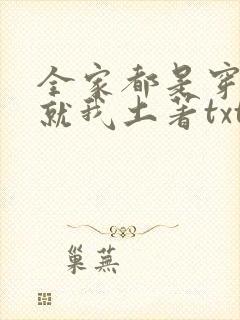 全家都是穿
就我土著txt
巢芜